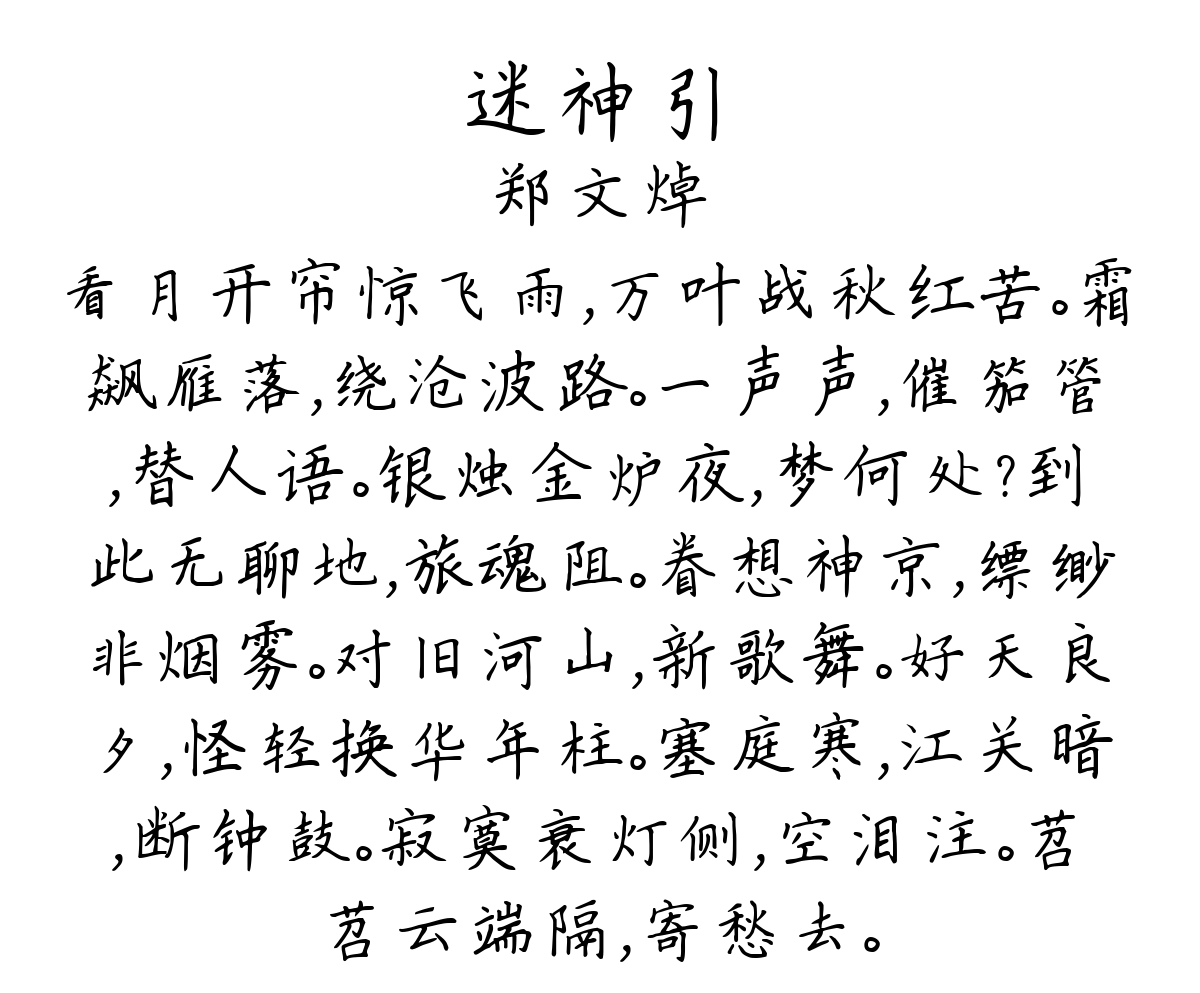 迷神引
郑文焯
看月开帘惊飞雨,万叶战秋红苦。霜
飙雁落,绕沧波路。一声声,催笳管
,替人语。银烛金炉夜,梦何处?到
此无聊地,旅魂阻。眷想神京,缥缈
非烟雾。对旧河山,新歌舞。好天良
夕,怪轻换华年柱。塞庭寒,江关暗
,断钟鼓。寂寞衰灯侧,空泪注。苕
苕云端隔,寄愁去。